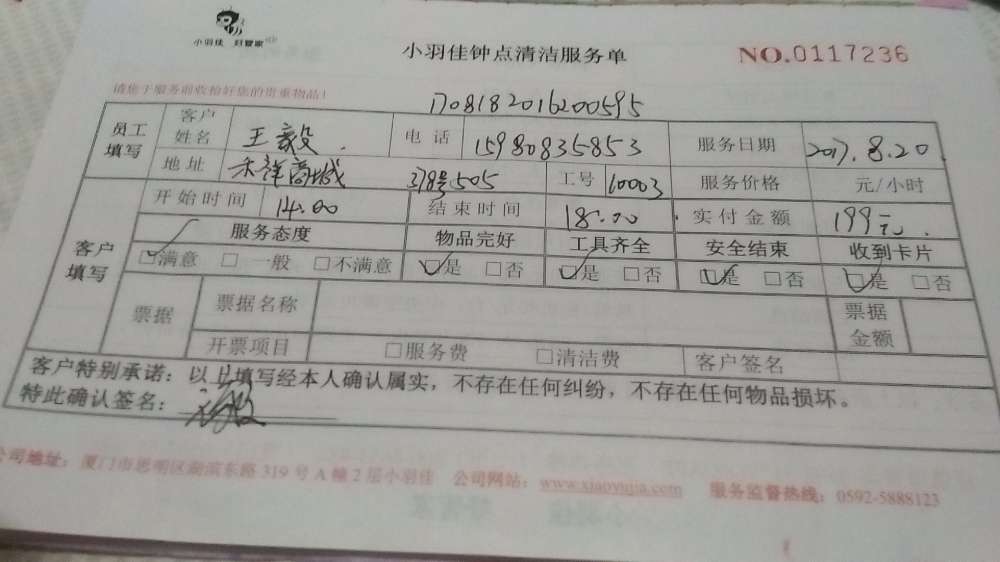 小羽佳 好管家
小羽佳钟点清洁服务单
NO.0117236
请您于服务前收拾好您的贵重物品！
1708182016200595
员工填写 客户姓名 王毅 电话 15980835853 服务日期 2017.8.20.
地址 禾祥商城 378号505 工号 10003 服务价格 元/小时
客户填写 开始时间 14.00 结束时间 18:00 实付金额 199元
服务态度 物品完好 工具齐全 安全结束 收到卡片
☑满意 □一般 □不满意 ☑是 □否 ☑是 □否 ☑是 □否 ☑是 □否
票据 票据名称 票据金额
开票项目 □服务费 □清洁费 客户签名
客户特别承诺：以上填写经本人确认属实，不存在任何纠纷，不存在任何物品损坏。
特此确认签名：
公司地址：厦门市思明区湖滨东路319号A幢2层小羽佳 公司网站：www.xiaoyujia.com 服务监督热线：0592-5888123